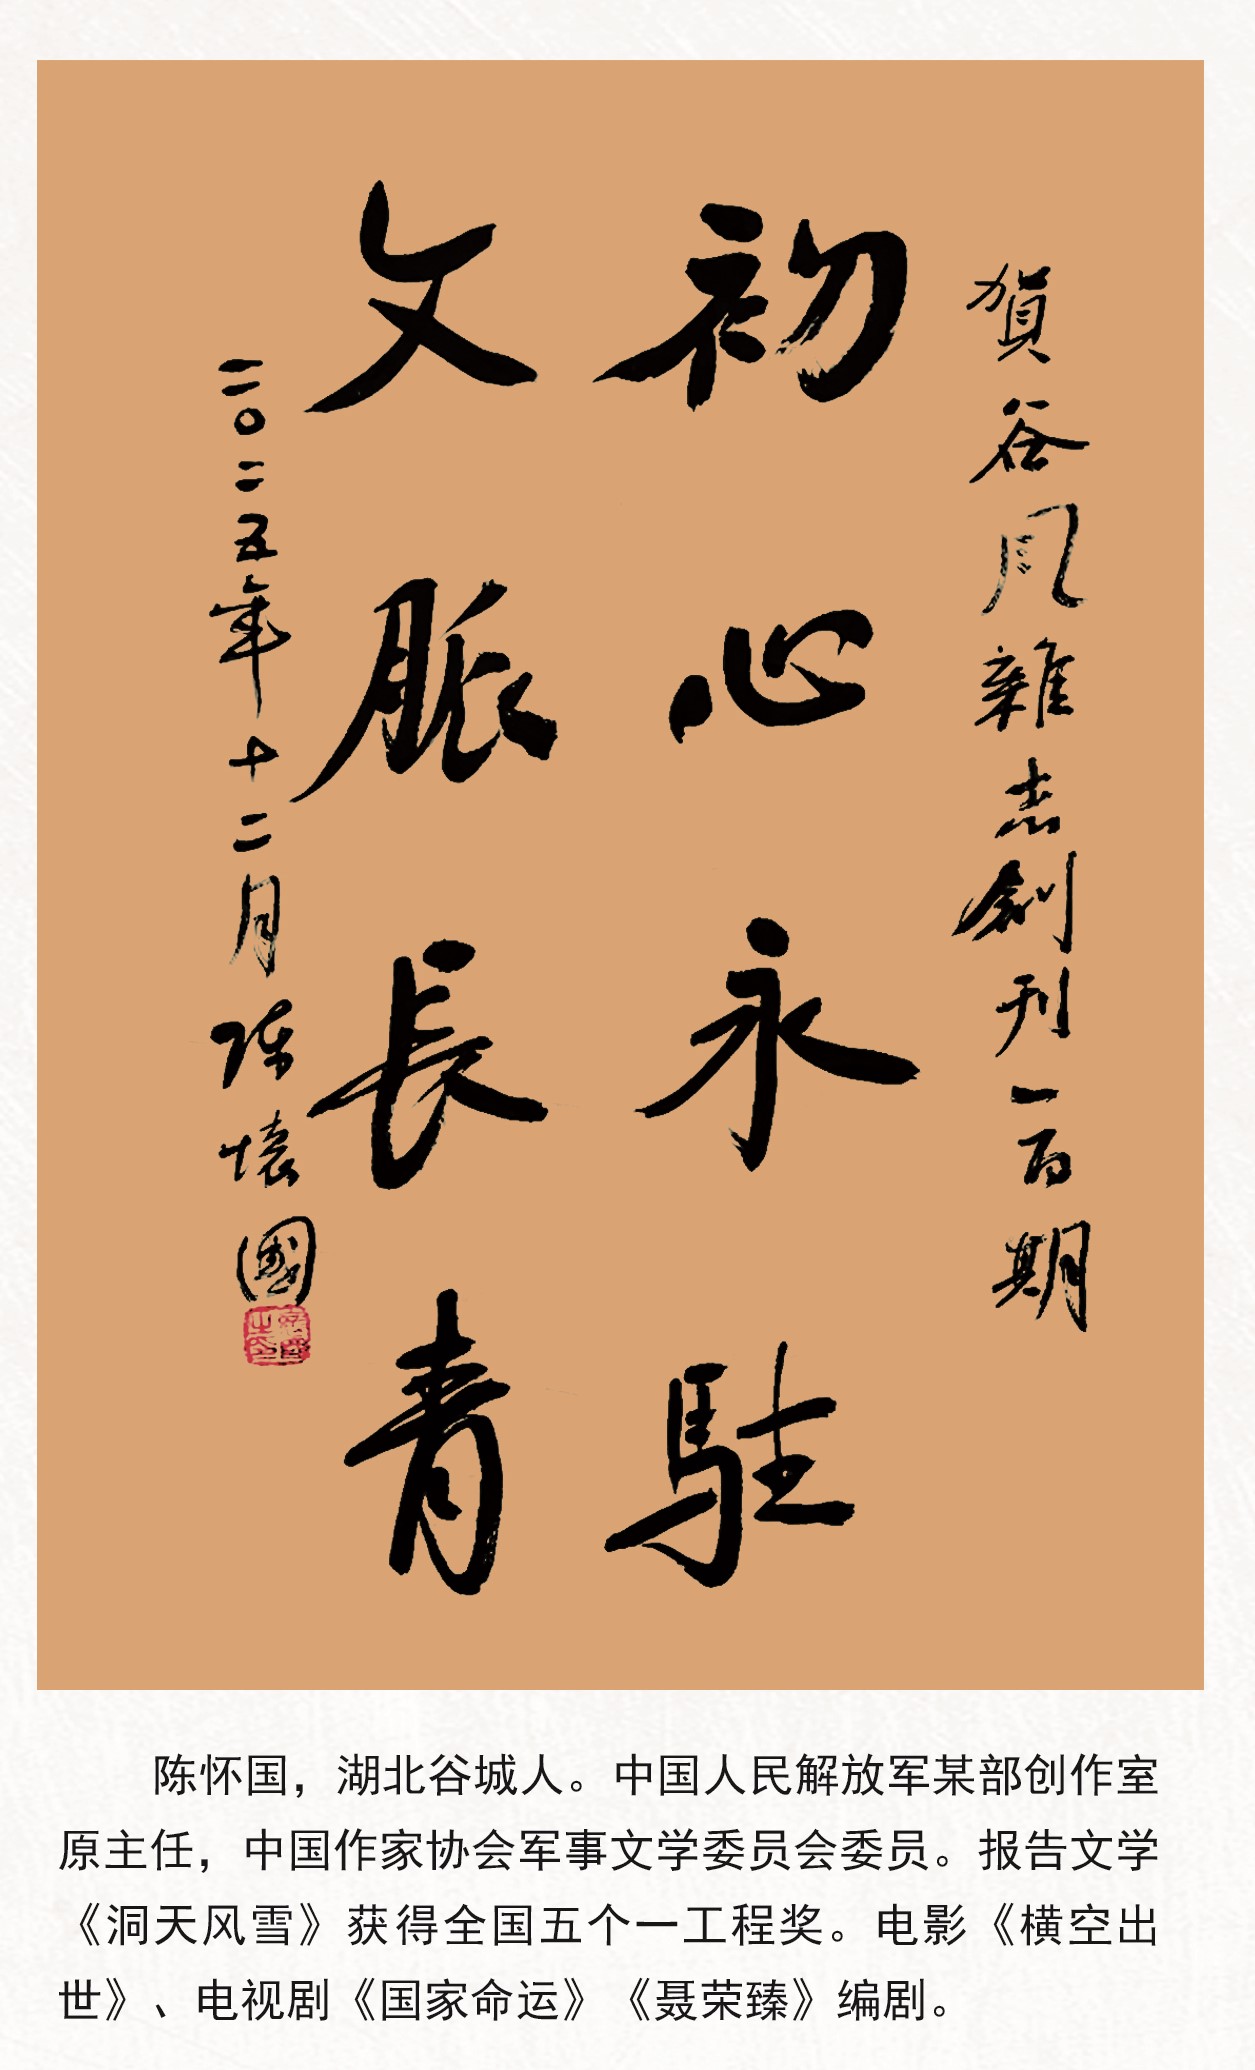 賀谷风雜志創刊一百期
初心永駐
文脈長青
二〇二五年十二月陈懷國
陈怀国，湖北谷城人。中国人民解放军某部创作室
原主任，中国作家协会军事文学委员会委员。报告文学
《洞天风雪》获得全国五个一工程奖。电影《横空出
世》、电视剧《国家命运》《聂荣臻》编剧。